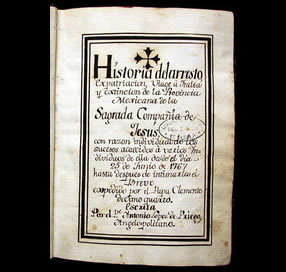 Historia del arresto
Expatriacion, Viage á Italia
y Extincion de la Provincia
Mexicana de la
Sagrada Compañia de
Jesus,
con razon individual de los
sucesos acaecidos á varios In
dividuos de ella desde el dia
25 de Junio de 1767
hasta despues de intimarles el
Breve
expedido por el Papa Clemente
decimo quarto.
Escrita
Por el Antonio Lopez de Priego
Angelopolitano.